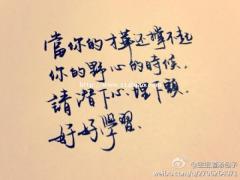 當你的才華还撐不起
你的野心的時候，
請潛下心，埋下頭，
好好學習．